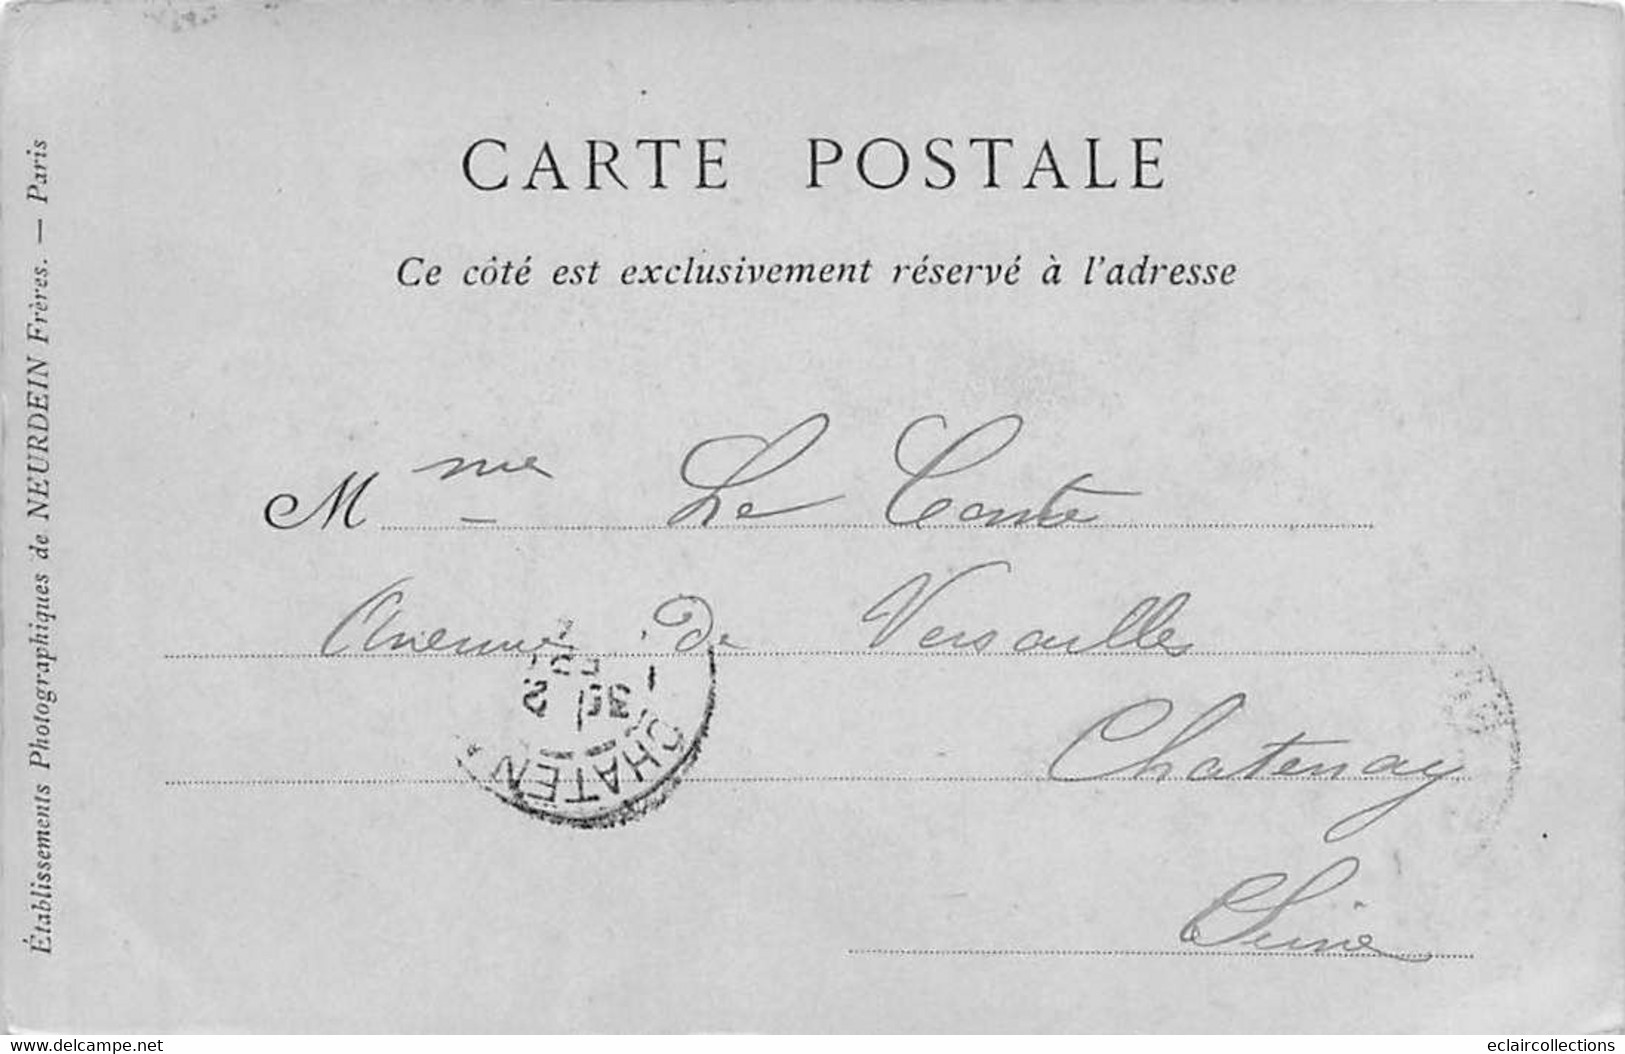 CARTE POSTALE
Ce côté est exclusivement réservé à l'adresse
Mme Le Conte
Avenue de Versailles
Chatenay
Seine
CHATEN
Établissements Photographiques de NEURDEIN Frères. — Paris
www.delcampe.net
eclaircollections